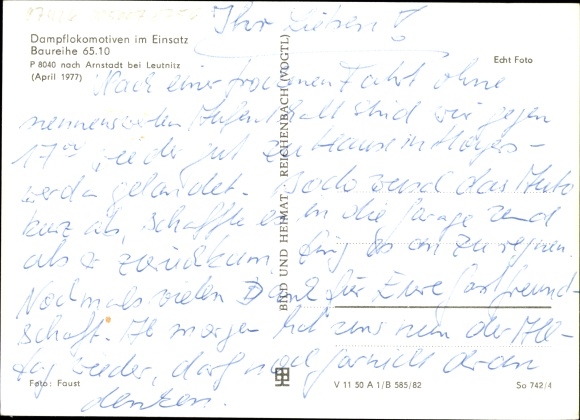 Ihr Lieben!
Dampflokomotiven im Einsatz
Baureihe 65.10
P 8040 nach Arnstadt bei Leutnitz
(April 1977)
Echt Foto
Nach einer trockenen Fahrt ohne
nennenswerten Aufenthalt sind wir gegen
17°° wieder gut zu Hause in Hoyers-
werda gelandet. wusch das Auto
kurz ab, schaffte es in die Garage und
als er zurückkam, fing es an zu regnen.
Nochmals vielen Dank für Eure Gastfreund-
schaft. Ab morgen hat uns nun der All-
tag wieder, darf noch garnicht daran
denken.
BILD UND HEIMAT REICHENBACH (VOGTL)
Foto: Faust
V 11 50 A 1/B 585/82
So 742/4